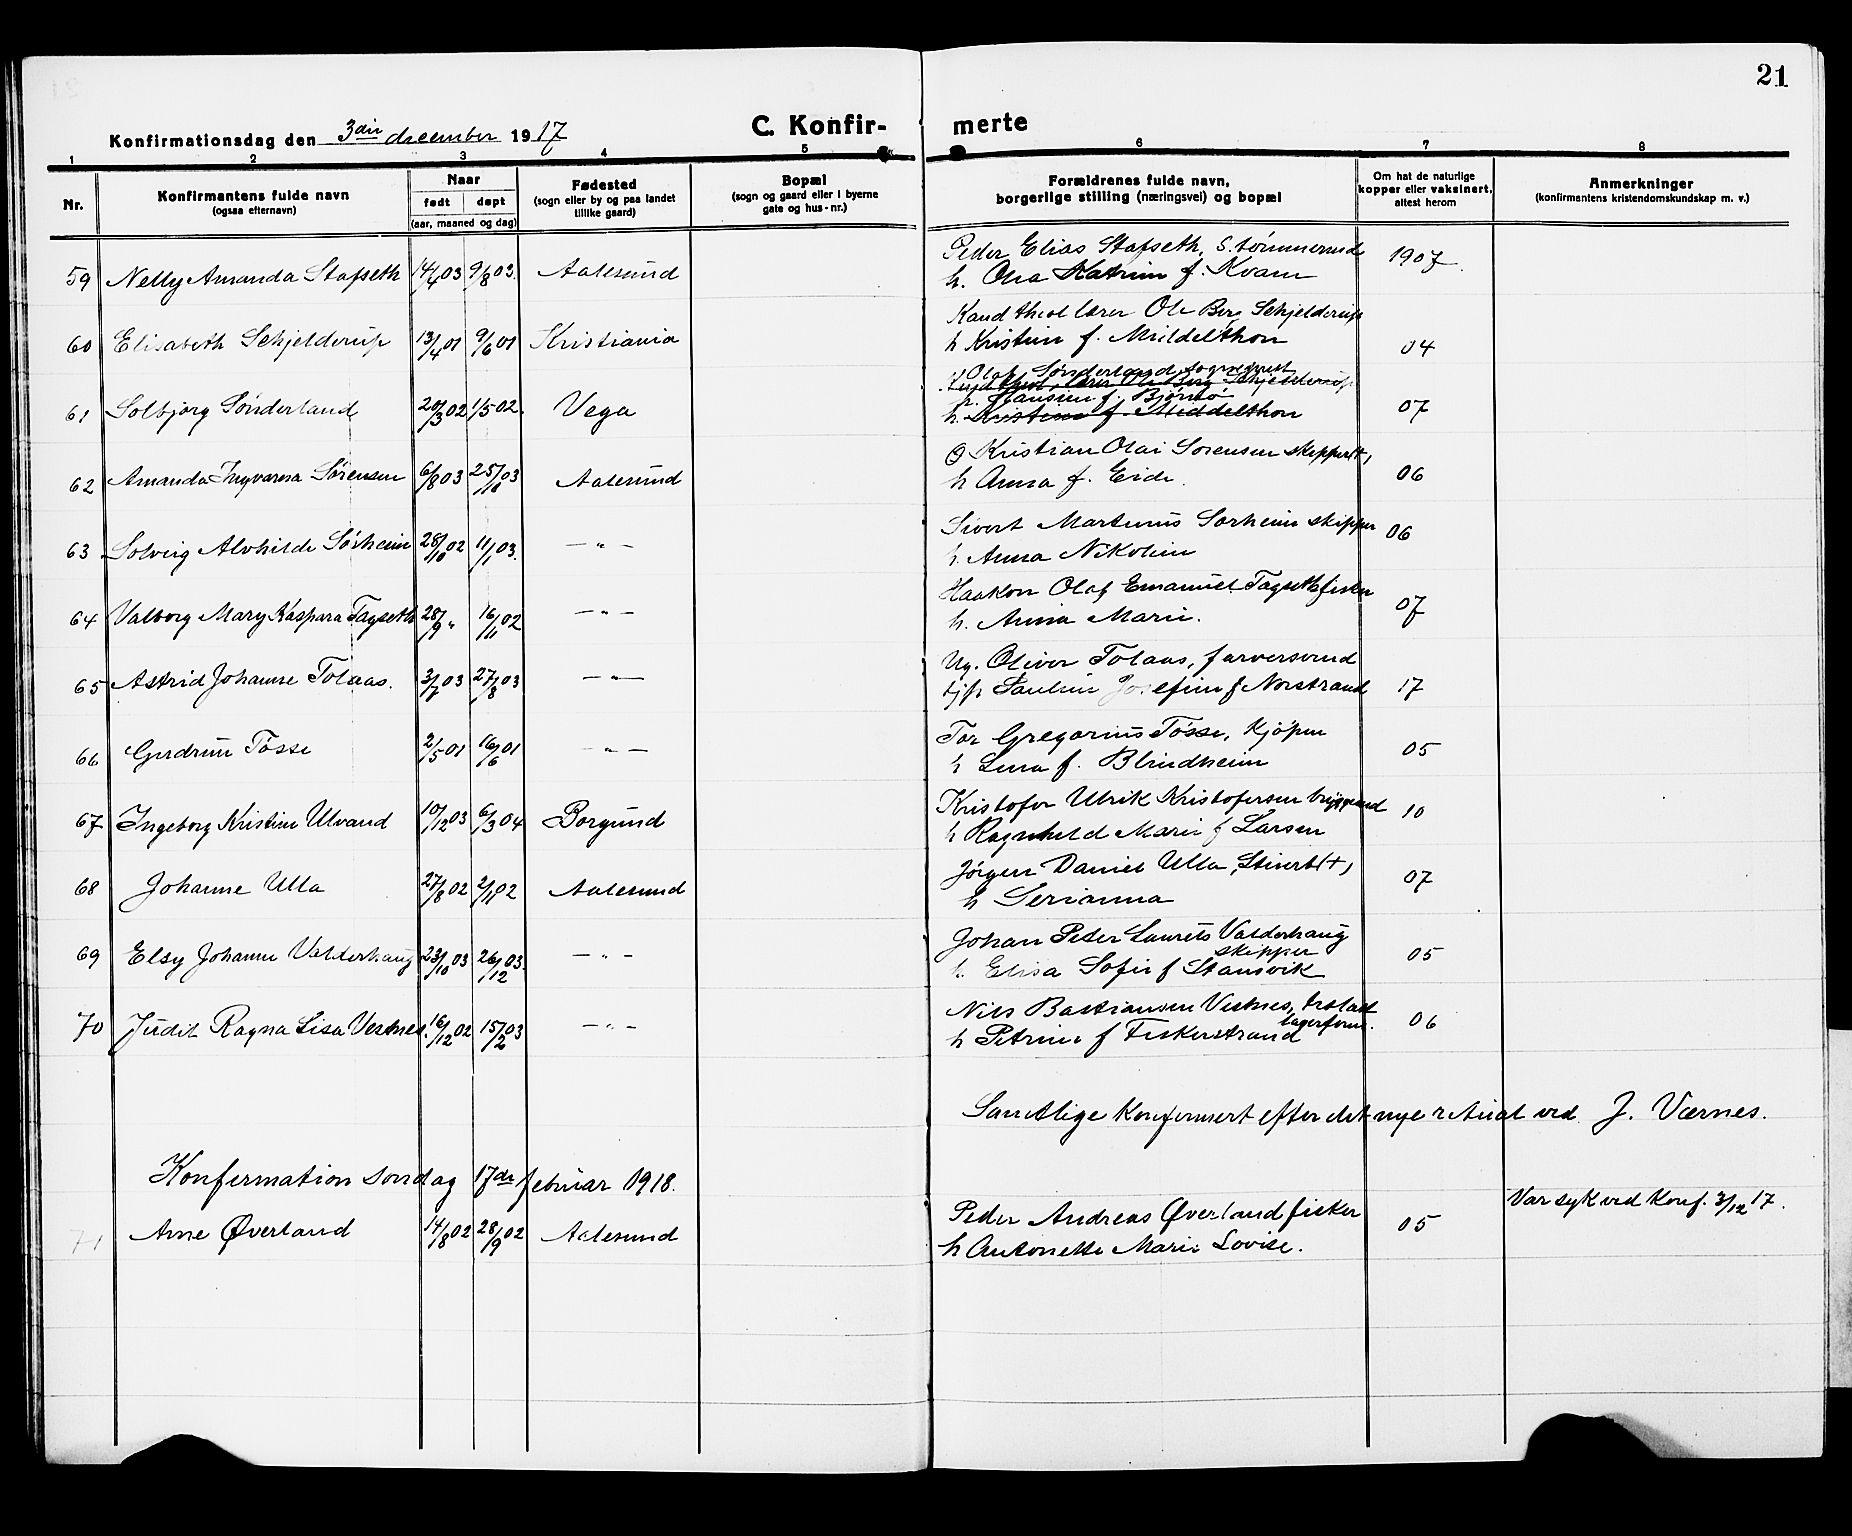 21
Konfirmationsdag den 3die december 1917
C. Konfir- merte
1 2 3 4 5 6 7 8
Nr.
Konfirmantens fulde navn
(ogsaa efternavn)
Naar
født døpt
(aar, maaned og dag)
Fødested
(sogn eller by og paa landet
tillike gaard)
Bopæl
(sogn og gaard eller i byerne
gate og hus-nr.)
Forældrenes fulde navn,
borgerlige stilling (næringsvei) og bopæl
Om hat de naturlige
kopper eller vaksinert,
attest herom
Anmerkninger
(konfirmantens kristendomskundskap m. v.)
Peder Elias Stafseth, s. tømmermd
59 Nelly Amanda Stafseth 14/4 03 9/8 03. Aalesund h. Olia Katrine f. Kvam 1907
Kand theol lærer Ole Berg Schjelderup
60 Elisabeth Schjelderup 13/4 01 9/6 01 Kristiania h Kristine f. Middelthon 04
Olaf Sønderland, sogneprest
Kand theol, lærer Ole Berg Schjelderup
h. Hansine f. Bjørnø
61 Solbjørg Sønderland 20/3 02 1/5 02. Vega h. Kristine f. Middelthon 07
Kristian Olai Sørensen skipper(+)
62 Amanda Ingvarda Sørensen 6/8 03 25/10 03 Aalesund h Anna f. Eide. 06
Sivert Martinus Sørheim skipper
63 Solveig Alvhilde Sørheim 28/10 02 11/1 03. — " — h. Anna Nikoline 06
Haakon Olaf Emanuel Tagseth fisker
64 Valborg Mary Kaspara Tagseth 28/9 " 16/11 02 — " — h. Anna Marie. 07
Ug. Oliver Tolaas, farversvend
65 Astrid Johanne Tolaas. 3/7 03 27/8 03 — " — tjp Pauline Josefine f Norstrand 17
Tor Gregorius Tøsse, kjøpm
66 Gudrun Tøsse 2/5 01 16/6 01 — " — h Lina f. Blindheim 05
Kristofer Ulrik Kristofersen
67 Ingeborg Kristine Ulvand 10/12 03 6/3 04 Borgund h Ragnhild Marie f Larsen 10
Jørgen Daniel Ulla, Stuert (+)
68 Johanne Ulla 27/8 02 2/11 02 Aalesund h Serianna 07
Johan Peter Laurits Valderhaug
skipper
69 Elsy Johanne Valderhaug 23/10 03 26/12 03. — " — h. Elisa Sofie f Stansvik 05
Nils Bastiansen Vestnes,
lagerform.
70 Judit Ragna Lisa Vestnes. 16/12 02 15/2 03 — " — h Petrine f Fiskerstrand 06
Samtlige konfirmert efter det nye ritual ved J. Værnes.
Konfirmation søndag 17de februar 1918.
Peder Andreas Øverland fisker
Var syk ved Konf. 3/12 17.
71 Arne Øverland 14/8 02 28/9 02 Aalesund h Antonette Marie Lovise. 05